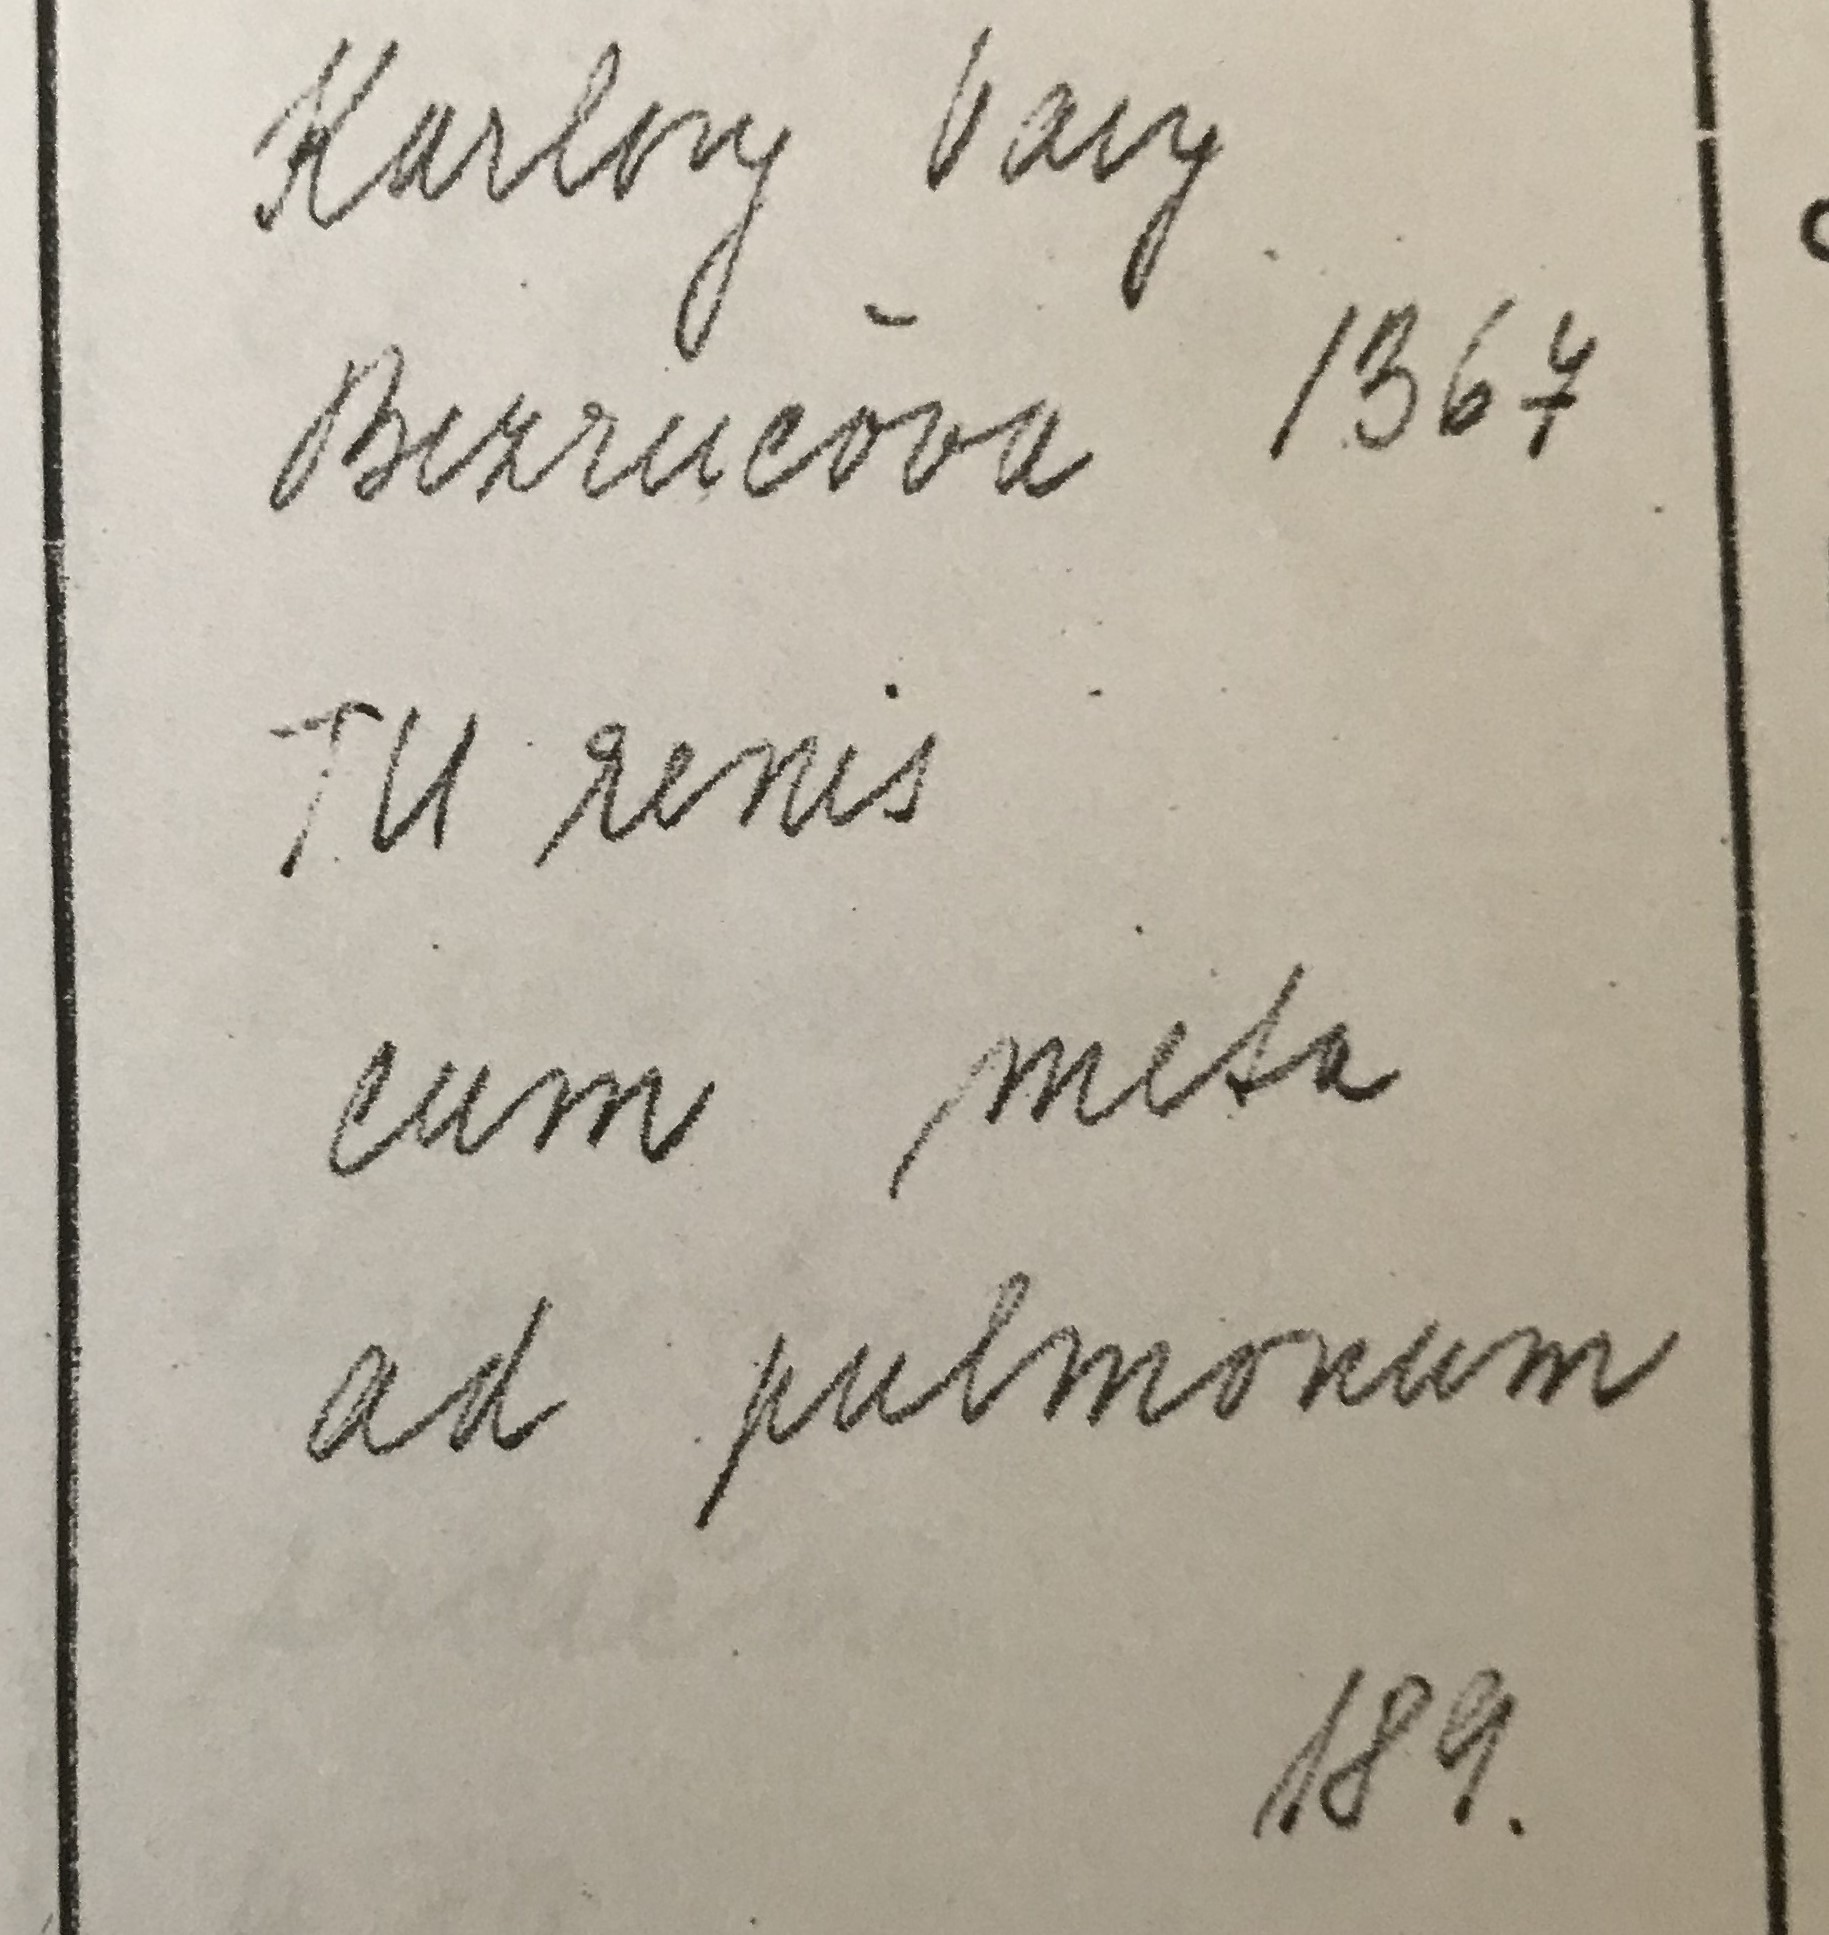 Karlovy Vary
Bezručova 1367
TU renis
cum meta
ad pulmonum
189.